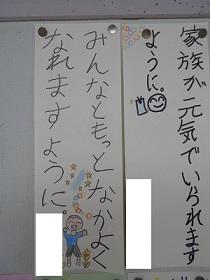 家族が元気でいられます
ように。
みんなともっとなかよく
なれますように。